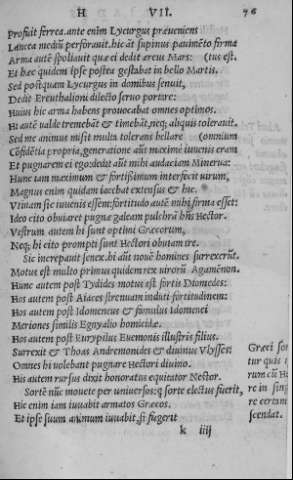 H VII. 76
Profuit ferrea. ante enim Lycurgus præueniens
Lancea mediũ perforauit. hic aũt supinus pauimẽto firma
Arma autẽ spoliauit quæ ei dedit æreus Mars: (tus est.
Et hæc quidem ipse postea gestabat in bello Martis.
Sed postquam Lycurgus in domibus senuit,
Dedit Ereuthalioni dilecto seruo portare:
Huius hic arma habens prouocabat omnes optimos.
Hi autẽ ualde tremebãt & timebãt, neq; aliquis tolerauit.
Sed me animus misit multũ tolerans bellare (omnium
Cõfidẽtia propria, generatione aũt maximè iuuenis eram
Et pugnarem ei ego: dedit aũt mihi audaciam Minerua:
Hunc iam maximum & fortissimum interfeci uirum,
Magnus enim quidam iacebat extensus & hic.
Vtinam sic iuuenis essem: fortitudo autẽ mihi firma esset:
Ideo cito obuiaret pugnæ galeam pulchrã hñs Hector.
Vestrum autem hi sunt optimi Græcorum,
Neq; hi cito prompti sunt Hectori obuiam ire.
Sic increpauit senex. hi aũt nouẽ homines surrexerũt.
Motus est multo primus quidem rex uirorũ Agamẽnon.
Hunc autem post Tydides motus est fortis Diomedes:
Hos autem post Aiaces strenuam induti fortitudinem:
Hos autem post Idomeneus & famulus Idomenei
Meriones similis Egnyalio homicidæ.
Hos autem post Eurypilus Euemonis illustris filius.
Surrexit & Thoas Andremonides & diuinus Vlysses:
Omnes hi uolebant pugnare Hectori diuino.
His autem rursus dixit honoratus equitator Nestor.
Sortẽ nũc mouete per uniuersos: q̃ sorte electus fuerit,
Hic enim iam iuuabit armatos Græcos.
Et ipse suum animum iuuabit, si fugerit
k iiij
Græci sor
tur quis
rum cũ He
re in sin
re certam
scendat.